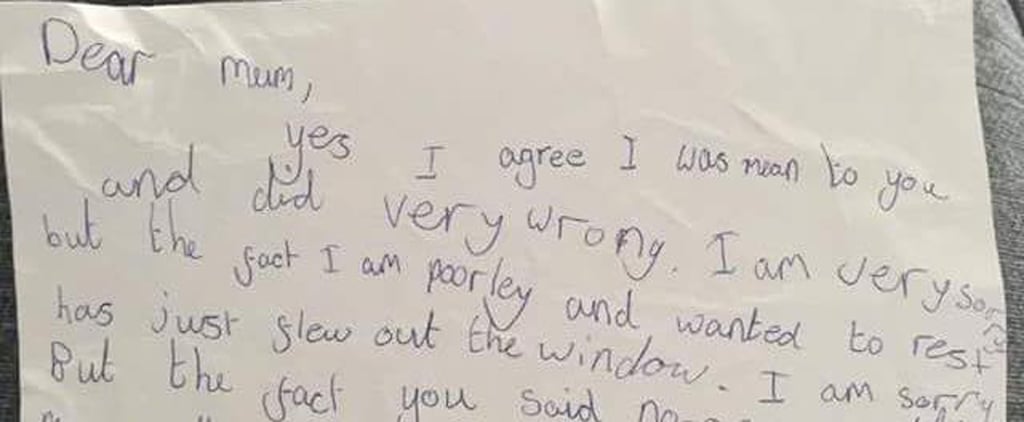 Dear mum,
yes I agree I was mean to you
and did very wrong. I am very sorry
but the fact I am poorley and wanted to rest
has just flew out the window. I am sorry
But the fact you said